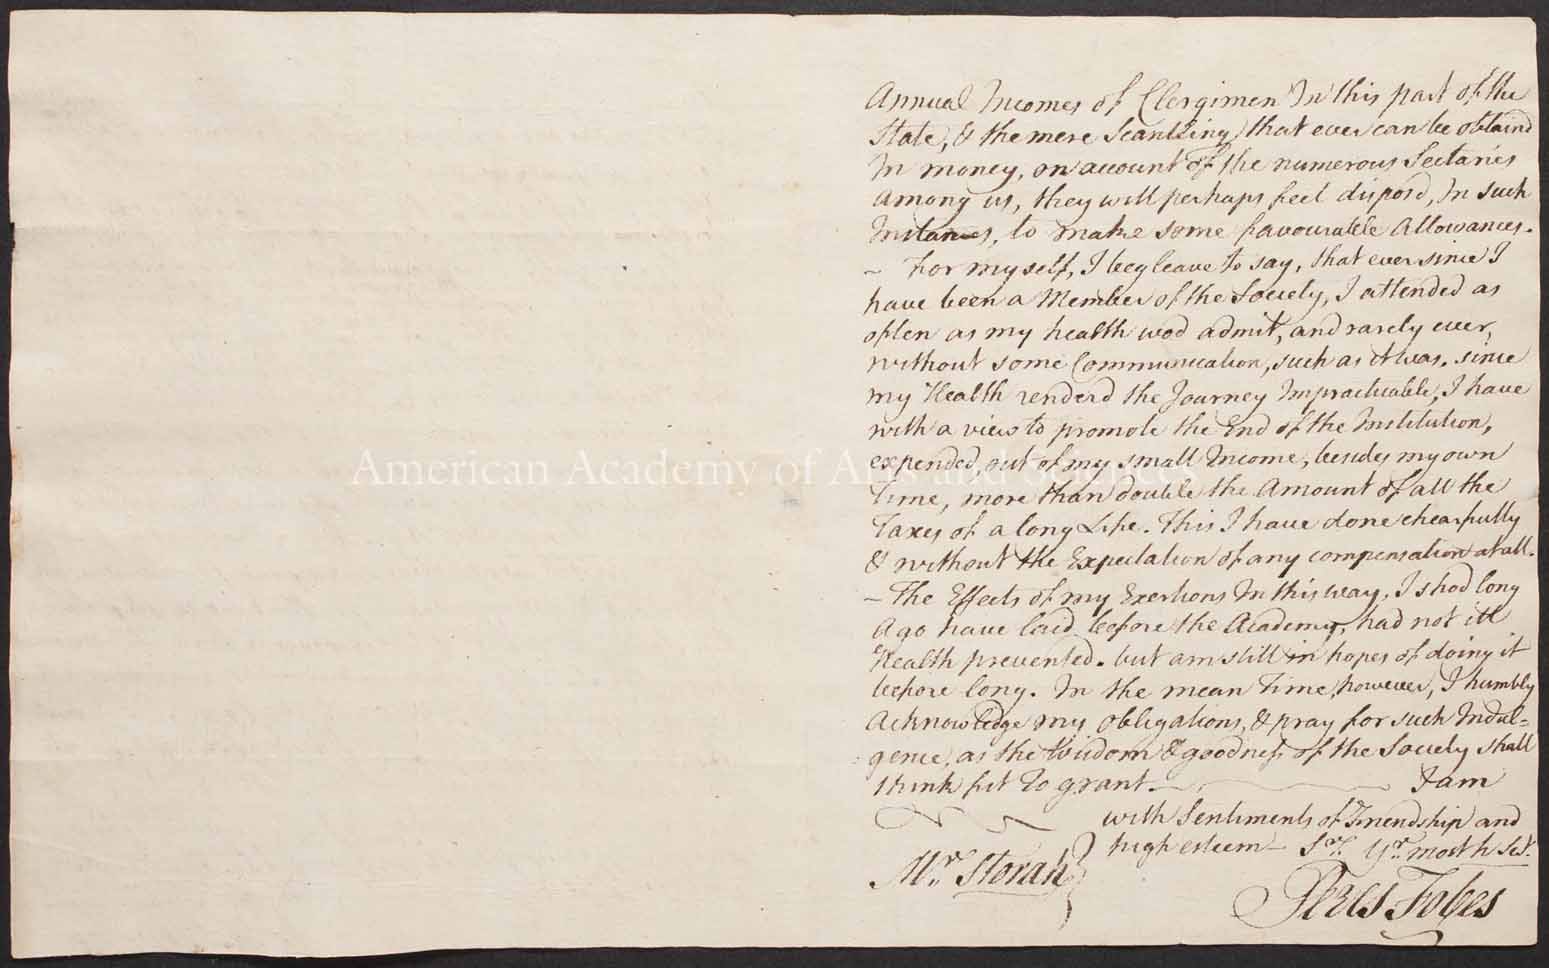 Annual Incomes of Clergimen In this part of the
State, & the mere Scantling that ever can be obtaind
In money, on account of the numerous Sectaries
among us, they will perhaps feel disposd, In such
Instances, to make some favourable Allowances.
– For myself, I beg leave to say, that ever since I
have been a Member of the Society, I attended as
often as my health wod admit, and rarely ever,
without some Communication, such as it was. since
my Health renderd the Journey Impracticable, I have
with a view to promote the End of the Institution,
expended, out of my small Income, besides my own
Time, more than double the Amount of all the
Taxes of a long Life. This I have done chearfully
& without the Expectation of any compensation at all.
– The Effects of my Exertions In this way, I shod long
Ago have laid before the Academy, had not ill
Health prevented. but am still in hopes of doing it
before long. In the mean Time, however, I humbly
Acknowledge my obligations, & pray for such Indul=
gence, as the Wisdom & goodness of the Society shall
think fit to grant. I am
with Sentiments of Friendship and
high esteem – Sr. Yr. most h Set.
Mr. Storah
Peres Fobes
American Academy of Arts and Sciences